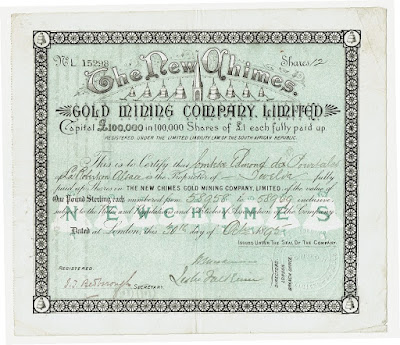 No. L 15298 Shares 12
The New Chimes
GOLD MINING COMPANY, LIMITED
Capital £100,000 in 100,000 Shares of £1 each fully paid up
REGISTERED UNDER THE LIMITED LIABILITY LAW OF THE SOUTH AFRICAN REPUBLIC.
This is to Certify that
is the Proprietor of Twelve
fully paid up Shares in THE NEW CHIMES GOLD MINING COMPANY, LIMITED of the value of
One Pound Sterling each numbered from to inclusive
subject to the Rules and Regulations and Articles of Association of the Company
NEW CHIMES
Dated at London, this 30th day of
ISSUED UNDER THE SEAL OF THE COMPANY.
REGISTERED.
SECRETARY.
DIRECTORS
LONDON
BRANCH OFFICE